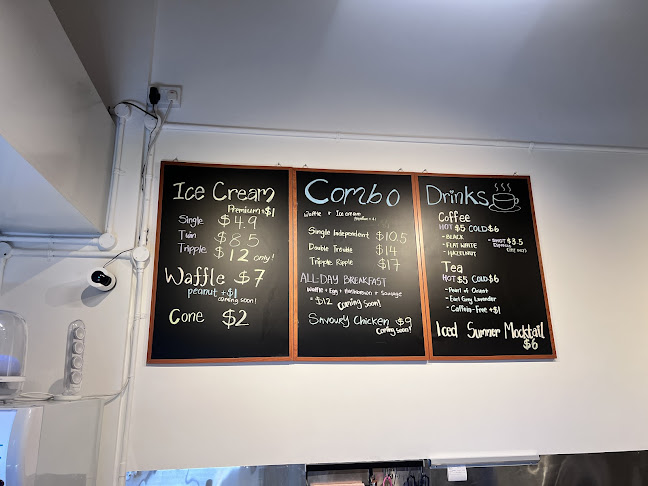 Ice Cream
Premium +$1
Single $4.9
Twin $8.5
Tripple $12 only!
Waffle $7
peanut +$1
coming soon!
Cone $2
Combo
Waffle + Ice cream
premium +1
Single Independent $10.5
Double Trouble $14
Tripple Ripple $17
ALL-DAY BREAKFAST
Waffle + Egg + Mushroom + Sausage
= $12 Coming Soon!
Savoury Chicken $9
Coming Soon!
Drinks
Coffee
HOT $5 COLD $6
- BLACK
- FLAT WHITE
- HAZELNUT
- SHOT $3.5
Espresso
Tea
HOT $5 COLD $6
- Pearl of Orient
- Earl Grey Lavender
- Caffein-Free +$1
Iced Summer Mocktail
$6